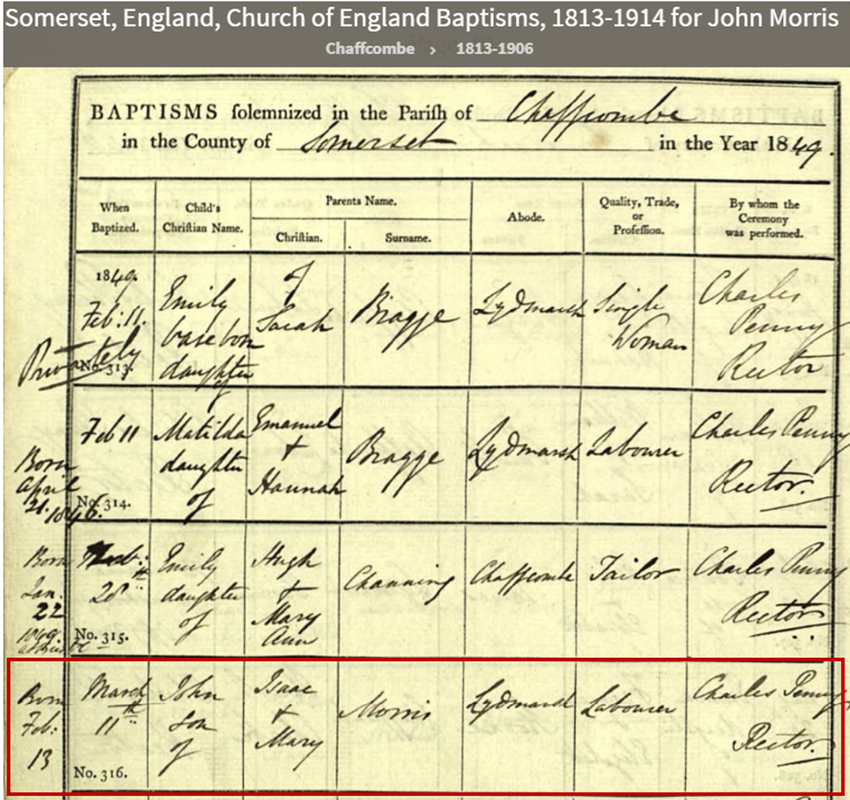 Somerset, England, Church of England Baptisms, 1813-1914 for John Morris
Chaffcombe › 1813-1906
BAPTISMS solemnized in the Parish of Chaffcombe
in the County of Somerset in the Year 1849.
When
Baptized.
Child's
Christian Name.
Parents Name.
Christian.
Surname.
Abode.
Quality, Trade,
or
Profession.
By whom the
Ceremony
was performed.
1849
Feb: 11.
Privately
No. 313.
Emily
base born
daughter
of
of
Sarah
Bragge
Lydmarsh
Single
Woman
Charles
Penny
Rector
Born
April
21. 1846.
Feb 11
No. 314.
Matilda
daughter
of
Emanuel
+
Hannah
Bragge
Lydmarsh
Labourer
Charles Penny
Rector.
Born
Jan.
22
1849
28th
No. 315.
Emily
daughter
of
Hugh
+
Mary
Ann
Channing
Chaffcombe
Tailor
Charles Penny
Rector
Born
Feb:
13
March
11th
No. 316.
John
Son
of
Isaac
+
Mary
Morris
Labourer
Charles Penny
Rector.